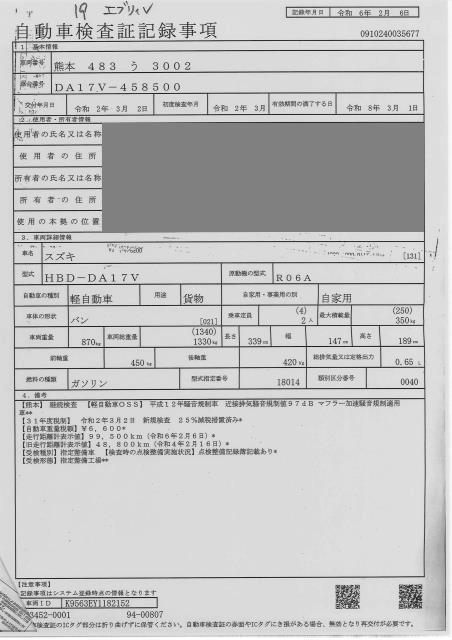 19 エブリィV
記録年月日 令和 6年 2月 6日
自動車検査証記録事項 0910240035677
1. 基本情報
車両番号 熊本 483 う 3002
車台番号 DA17V-458500
交付年月日 令和 2年 3月 2日 初度検査年月 令和 2年 3月 有効期間の満了する日 令和 8年 3月 1日
2. 使用者・所有者情報
使用者の氏名又は名称
使用者の住所
所有者の氏名又は名称
所有者の住所
使用の本拠の位置
3. 車両詳細情報
車名 スズキ [131]
型式 HBD-DA17V 原動機の型式 R06A
自動車の種別 軽自動車 用途 貨物 自家用・事業用の別 自家用
車体の形状 バン [021] 乗車定員 (4) 2人 最大積載量 (250) 350kg
車両重量 870kg 車両総重量 (1340) 1330kg 長さ 339cm 幅 147cm 高さ 189cm
前軸重 450kg 後軸重 420kg 総排気量又は定格出力 0.65 L
燃料の種類 ガソリン 型式指定番号 18014 類別区分番号 0040
4. 備考
【熊本】 継続検査 【軽自動車OSS】 平成12年騒音規制車 近接排気騒音規制値97dB マフラー加速騒音規制適用
車**
【31年度税制】 令和2年3月2日 新規検査 25%減税措置済み*
【自動車重量税額】 ¥6,600*
【走行距離計表示値】 99,500km (令和6年2月6日)*
【旧走行距離計表示値】 48,800km (令和4年2月16日)*
【受検種別】 指定整備車 【検査時の点検整備実施状況】 点検整備記録簿記載あり*
【受検形態】 指定整備工場**
【注意事項】
記録事項はシステム登録時点の情報となります
車両ID K9563EY1182152
03452-0001 94-00807
車検査証のICタグ部分は折り曲げずに保管ください。自動車検査証の券面やICタグにき損がある場合、無効となり再交付が必要です。